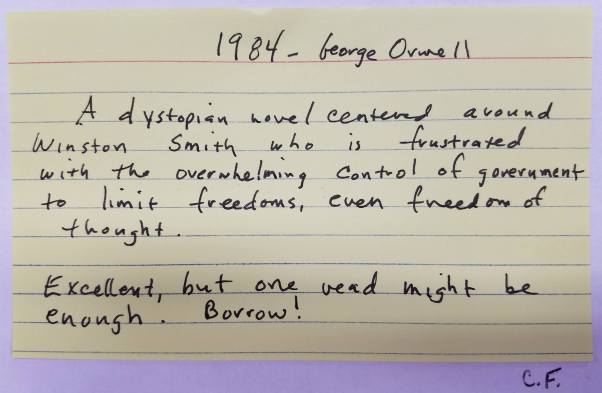 1984 - George Orwell
A dystopian novel centered around
Winston Smith who is frustrated
with the overwhelming control of government
to limit freedoms, even freedom of
thought.
Excellent, but one read might be
enough. Borrow!
C.F.